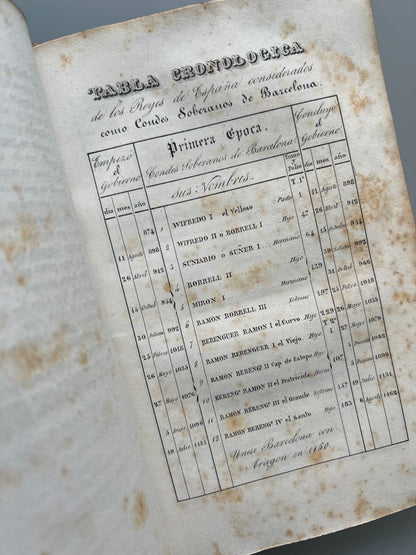 TABLA CRONOLOGICA
de los Reyes de España considerados
como Condes Soberanos de Barcelona.
Empezó el Gobierno
Primera Epoca.
Condes Soberanos de Barcelona:
sus Nombres.
Concluyó el Gobierno
dia mes año
Tomo y Folio
dia mes año
874 1 WIFREDO I el Velloso T. 1º 1 11 Agosto 898
11 Agosto 898 2 WIFREDO II o BORRELL I Hijo 47 26 Abril 912
26 Abril 912 3 SUNIARIO o SUÑER I Hermano 64 15
15 954 4 BORRELL II Hijo
5 MIRON I Hermano 139 31 966
30 992 6 RAMON BORRELL III Sobrino 197 25 Febro 1018
25 Febro 1018 7 BERENGUER RAMON I el Curvo Hijo 229 26 Mayo 1035
26 Mayo 1035 8 RAMON BERENGUER I el Viejo Hijo T. 2º 1 27 Mayo 1076
27 Mayo 1076 9 RAMON BERENGr II Cap de Estopa Hijo 107 5
10 BERENGr RAMON II el Fratricida Hermo 1096
5 1096 11 RAMON BERENGr III el Grande Sobrino 157 19 Julio 1131
19 Julio 1131 12 RAMON BERENGr IV el Santo Hijo 183 6 Agosto 1162
Unese Barcelona con
Aragon en 1150.